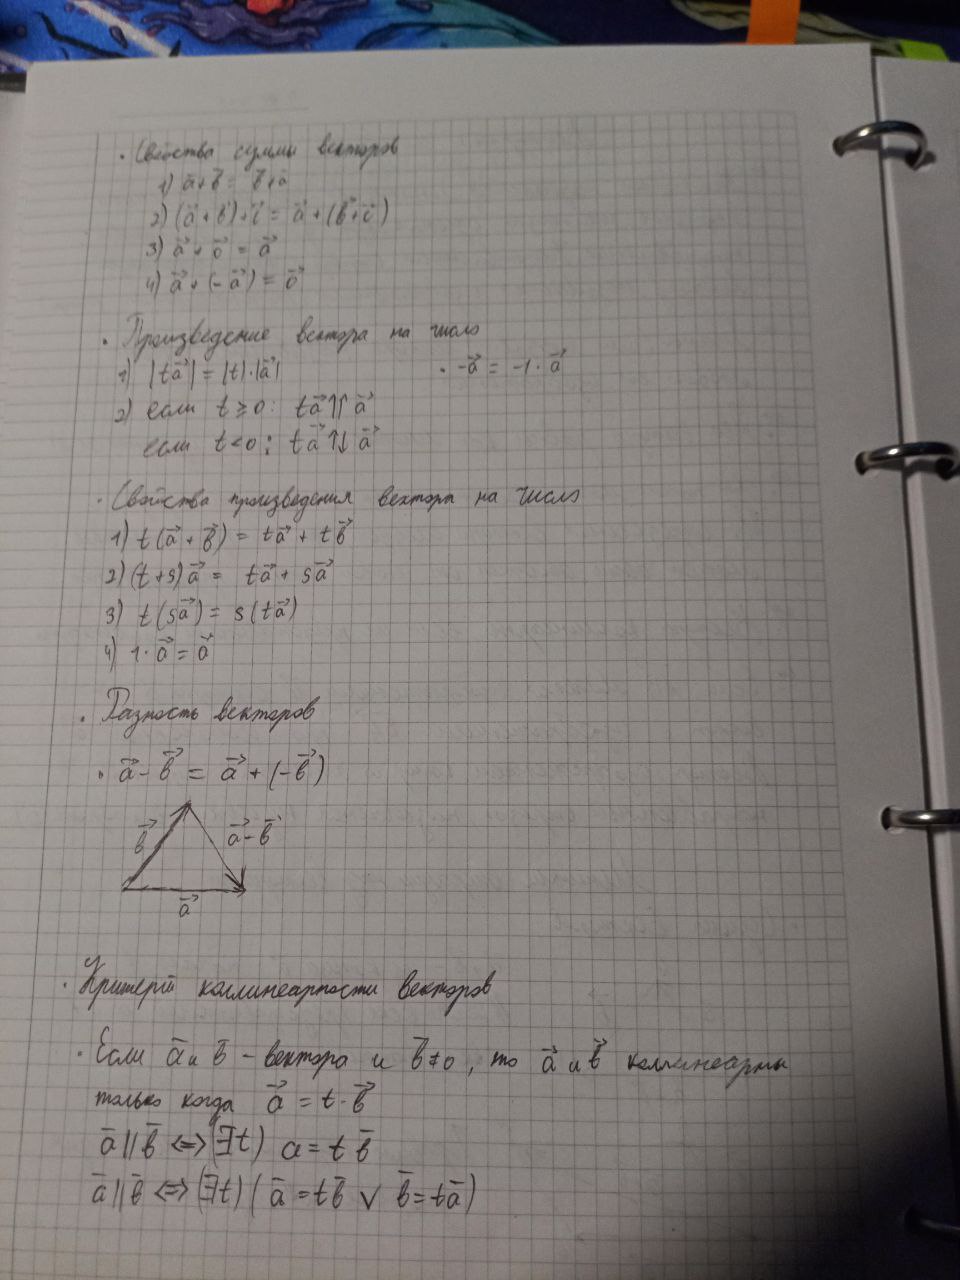 · Свойства суммы векторов
1) a⃗ + b⃗ = b⃗ + a⃗
2) (a⃗ + b⃗) + c⃗ = a⃗ + (b⃗ + c⃗)
3) a⃗ + o⃗ = a⃗
4) a⃗ + (-a⃗) = o⃗
· Произведение вектора на число
1) |ta⃗| = |t|·|a⃗| · -a⃗ = -1·a⃗
2) если t ≥ 0: ta⃗ ↑↑ a⃗
если t < 0: ta⃗ ↑↓ a⃗
· Свойства произведения вектора на число
1) t(a⃗ + b⃗) = ta⃗ + tb⃗
2) (t+s)a⃗ = ta⃗ + sa⃗
3) t(sa⃗) = s(ta⃗)
4) 1·a⃗ = a⃗
· Разность векторов
· a⃗ - b⃗ = a⃗ + (-b⃗)
b⃗ a⃗-b⃗
a⃗
· Критерий коллинеарности векторов
· Если a̅ и b̅ - вектора и b̅ ≠ 0, то a⃗ и b⃗ коллинеарны
только когда a⃗ = t·b⃗
a̅ || b̅ <=> (∃t) a = t b̅
a̅ || b̅ <=> (∃t) (a̅ = tb̅ ∨ b̅ = ta̅)